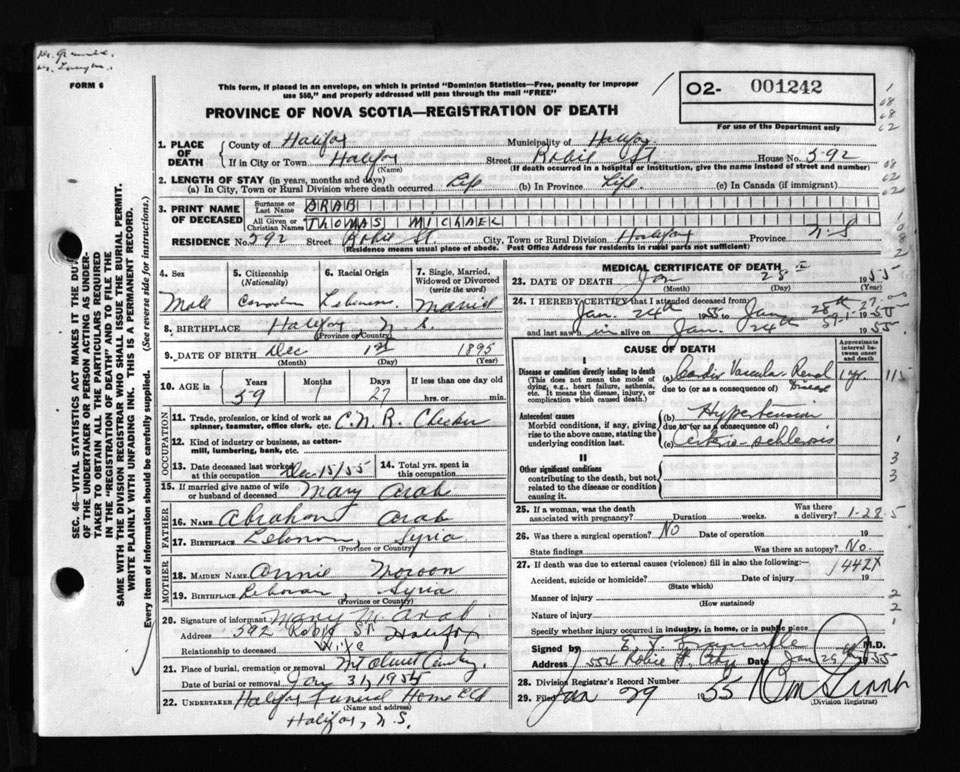 FORM 6
This form, if placed in an envelope, on which is printed "Dominion Statistics—Free, penalty for improper
use $50," and properly addressed will pass through the mail "FREE"
PROVINCE OF NOVA SCOTIA—REGISTRATION OF DEATH
O2- 001242
For use of the Department only
SEC. 46—VITAL STATISTICS ACT MAKES IT THE DUTY
OF THE UNDERTAKER OR PERSON ACTING AS UNDER-
TAKER TO OBTAIN ALL THE PARTICULARS REQUIRED
IN THE "REGISTRATION OF DEATH" AND TO FILE THE
SAME WITH THE DIVISION REGISTRAR WHO SHALL ISSUE THE BURIAL PERMIT.
WRITE PLAINLY WITH UNFADING INK. THIS IS A PERMANENT RECORD.
Every item of information should be carefully supplied. (See reverse side for instructions.)
1. PLACE OF DEATH
County of Halifax Municipality of Halifax
If in City or Town Halifax Street Robie St. House No. 592
(Name) (If death occurred in a hospital or institution, give the name instead of street and number)
2. LENGTH OF STAY (in years, months and days)
(a) In City, Town or Rural Division where death occurred Life (b) In Province Life. (c) In Canada (if immigrant)
3. PRINT NAME OF DECEASED
Surname or Last Name ARAB
All Given or Christian Names THOMAS MICHAEL
RESIDENCE No. 592 Street Robie St. City, Town or Rural Division Halifax Province N-S
(Residence means usual place of abode. Post Office Address for residents in rural parts not sufficient)
4. Sex Male
5. Citizenship (Nationality) Canadian
6. Racial Origin Lebanese
7. Single, Married, Widowed or Divorced (write the word) Married
8. BIRTHPLACE Halifax N. S.
(Province or Country)
9. DATE OF BIRTH Dec 1st 1895
(Month) (Day) (Year)
10. AGE in Years 59 Months 1 Days 27 If less than one day old hrs. or min.
OCCUPATION
11. Trade, profession, or kind of work as spinner, teamster, office clerk. etc. C.N.R. Checker
12. Kind of industry or business, as cotton-mill, lumbering, bank, etc.
13. Date deceased last worked at this occupation Dec 15/55
14. Total yrs. spent in this occupation
15. If married give name of wife or husband of deceased Mary Arab
FATHER
16. NAME Abraham Arab
17. BIRTHPLACE Lebanon, Syria
(Province or Country)
MOTHER
18. MAIDEN NAME Annie Maroon
19. BIRTHPLACE Lebanon, Syria
(Province or Country)
20. Signature of informant Mary M. Arab
Address 592 Robie St Halifax
Relationship to deceased Wife
21. Place of burial, cremation or removal Mt Olivet Cemetery
Date of burial or removal Jan 31, 1955
22. UNDERTAKER Halifax Funeral Home Ltd
(Name and address)
Halifax, N.S.
MEDICAL CERTIFICATE OF DEATH
23. DATE OF DEATH Jan 28 1955
(Month) (Day)
24. I HEREBY CERTIFY that I attended deceased from
Jan. 24th 1955 to Jan 28th 1955
and last saw him alive on Jan. 24th 1955
CAUSE OF DEATH
Approximate interval between onset and death
I
Disease or condition directly leading to death
(This does not mean the mode of dying, e.g., heart failure, asthenia, etc. It means the disease, injury, or complication which caused death.)
(a) Cardio Vascular Renal Disease 1 yr.
due to (or as a consequence of)
Antecedent causes
Morbid conditions, if any, giving rise to the above cause, stating the underlying condition last.
(b) Hypertension
due to (or as a consequence of)
(c) Arterio-schlerosis
II
Other significant conditions
contributing to the death, but not related to the disease or condition causing it.
25. If a woman, was the death associated with pregnancy? Duration weeks. Was there a delivery? 1-28-5
26. Was there a surgical operation? NO Date of operation 19
State findings Was there an autopsy? No.
27. If death was due to external causes (violence) fill in also the following:— 442X
Accident, suicide or homicide? Date of injury 19
(State which)
Manner of injury
(How sustained)
Nature of injury
Specify whether injury occurred in industry, in home, or in public place
Signed by M.D.
Address 554 Robie St. City Date Jan 29th 1955
28. Division Registrar's Record Number
29. Filed Jan 29 1955
(Division Registrar)